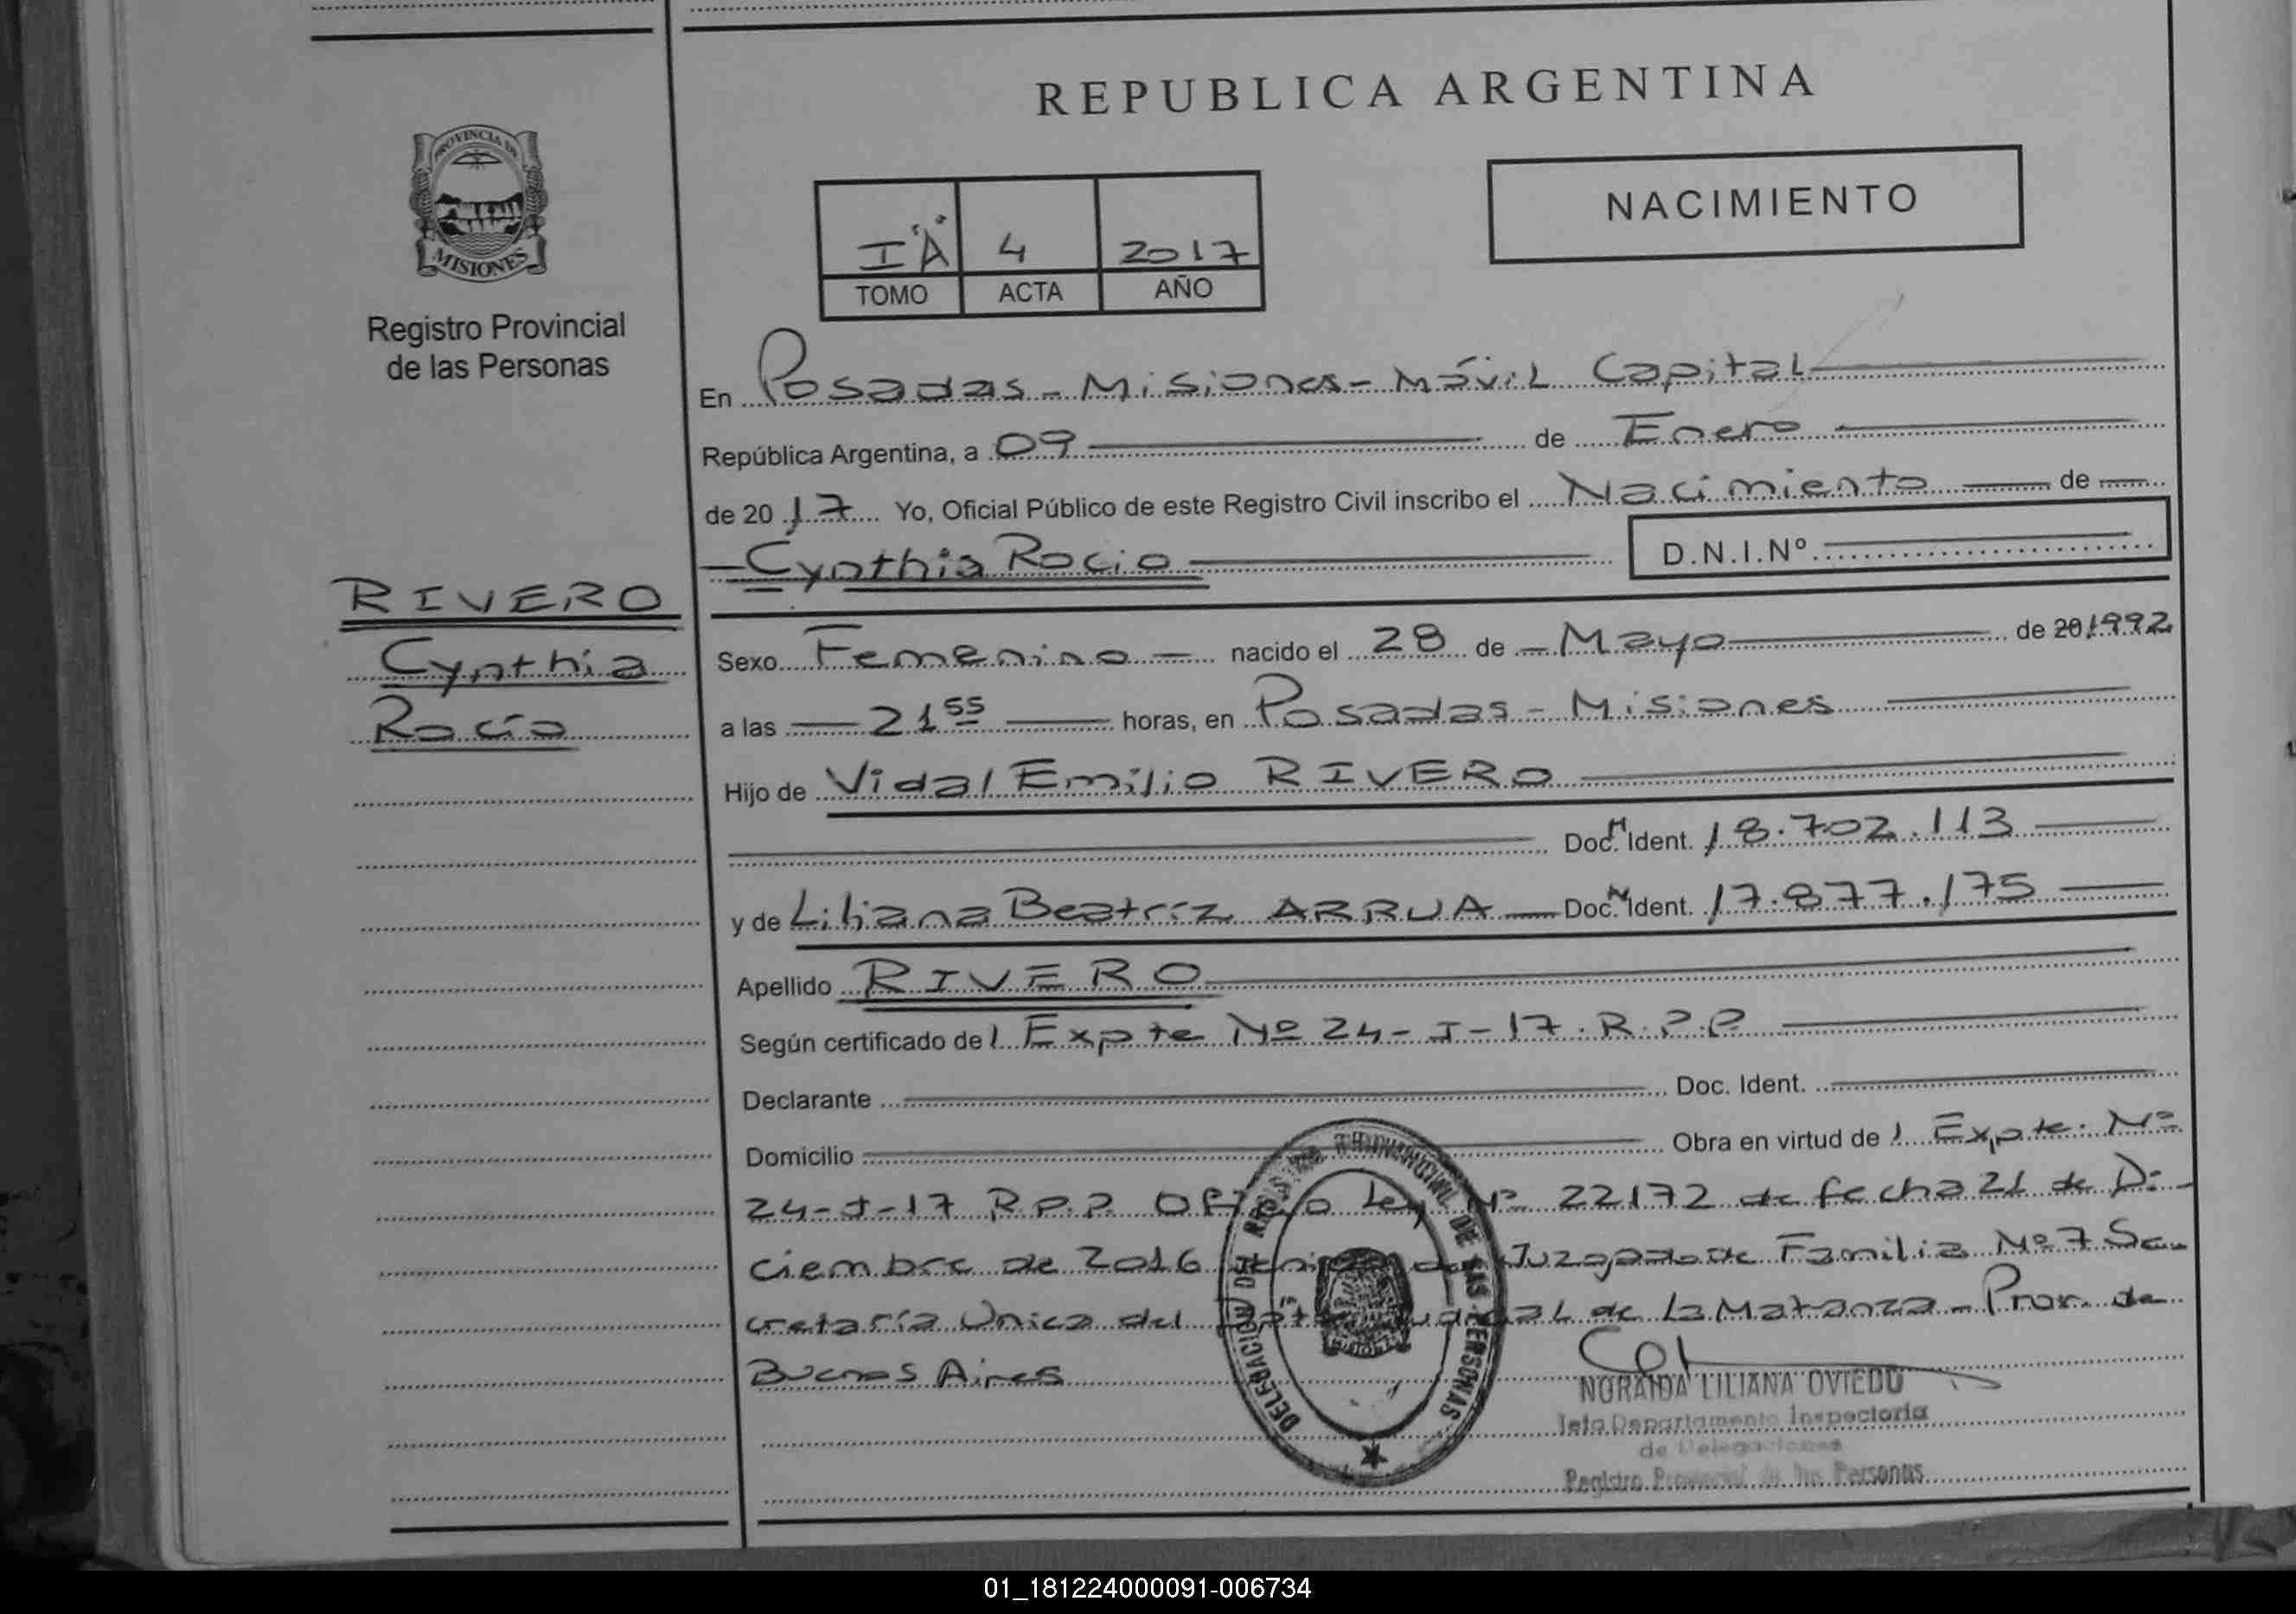 REPUBLICA ARGENTINA
PROVINCIA DE
MISIONES
Registro Provincial
de las Personas
NACIMIENTO
I "A" 4 2017
TOMO ACTA AÑO
En Posadas - Misiones - Móvil Capital
República Argentina, a 09 de Enero
de 2017 Yo, Oficial Público de este Registro Civil inscribo el Nacimiento de
Cynthia Rocio D.N.I.Nº
RIVERO
Cynthia
Rocío
Sexo Femenino nacido el 28 de Mayo de 201992
a las 21 55 horas, en Posadas - Misiones
Hijo de Vidal Emilio RIVERO
Doc. Ident. 18.702.113
y de Liliana Beatriz ARRUA Doc. Ident. 17.877.175
Apellido RIVERO
Según certificado de l Expte Nº 24-I-17. R.P.P
Declarante Doc. Ident.
Domicilio Obra en virtud de l Expte. Nº
24-I-17 R.P.P. Oficio Ley Nº 22172 de fecha 21 de Di-
ciembre de 2016 Juzgado de Familia Nº 7 Se-
cretaría Unica del de La Matanza - Prov. de
Buenos Aires
DELEGACION DEL REGISTRO PROVINCIAL DE LAS PERSONAS
NORAIDA LILIANA OVIEDO
Jefa Departamento Inspectoria
de Delegaciones
Registro Provincial de las Personas
01_181224000091-006734